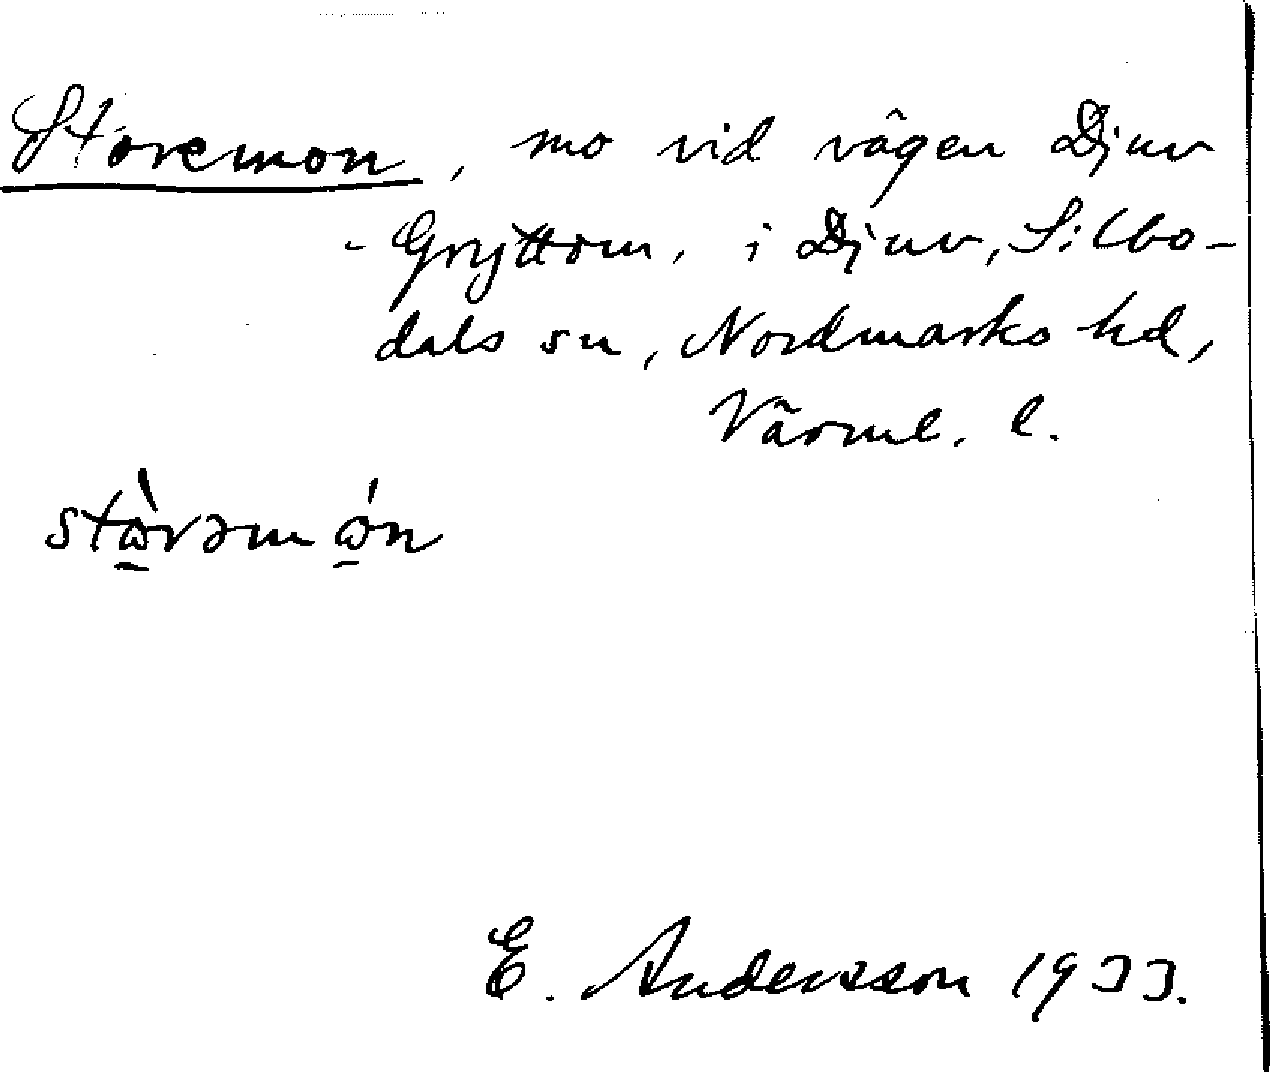 Storemon, mo vid vägen Djuv
- Gryttom, i Djuv, Silbo-
dals sn, Nordmarks hd,
Värml. l.
stɷ̀rəmɷ́n
E. Andersson 1933.